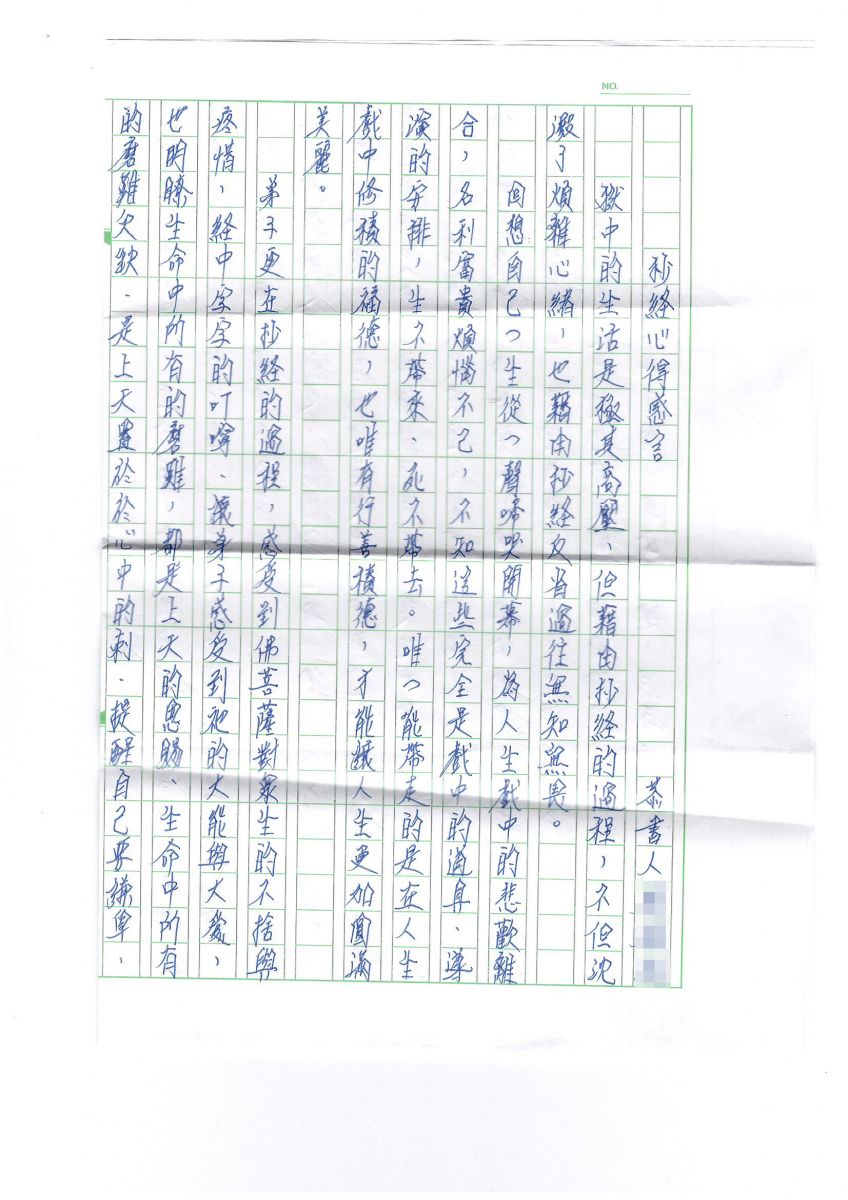 NO.
抄経心得感言 恭書人
獄中的生活是極其高壓、但藉由抄経的過程，不但沈
澱了煩雜心緒，也藉由抄経反省過往無知無畏。
回想自己一生從一聲啼哭開幕，為人生戲中的悲歡離
合，名利富貴煩惱不已，不知這些完全是戲中的道具、導
演的安排，生不帶來、死不帶去。唯一能帶走的是在人生
戲中修積的福德，也唯有行善積德，才能讓人生更加圓滿
美麗。
弟子更在抄経的過程，感受到佛菩薩對眾生的不捨與
疼惜，経中字字的叮嚀、讓弟子感受到祂的大能與大愛，
也明瞭生命中所有的磨難，都是上天的恩賜、生命中所有
的磨難欠缺．是上天置於於心中的刺．提醒自己要謙卑，